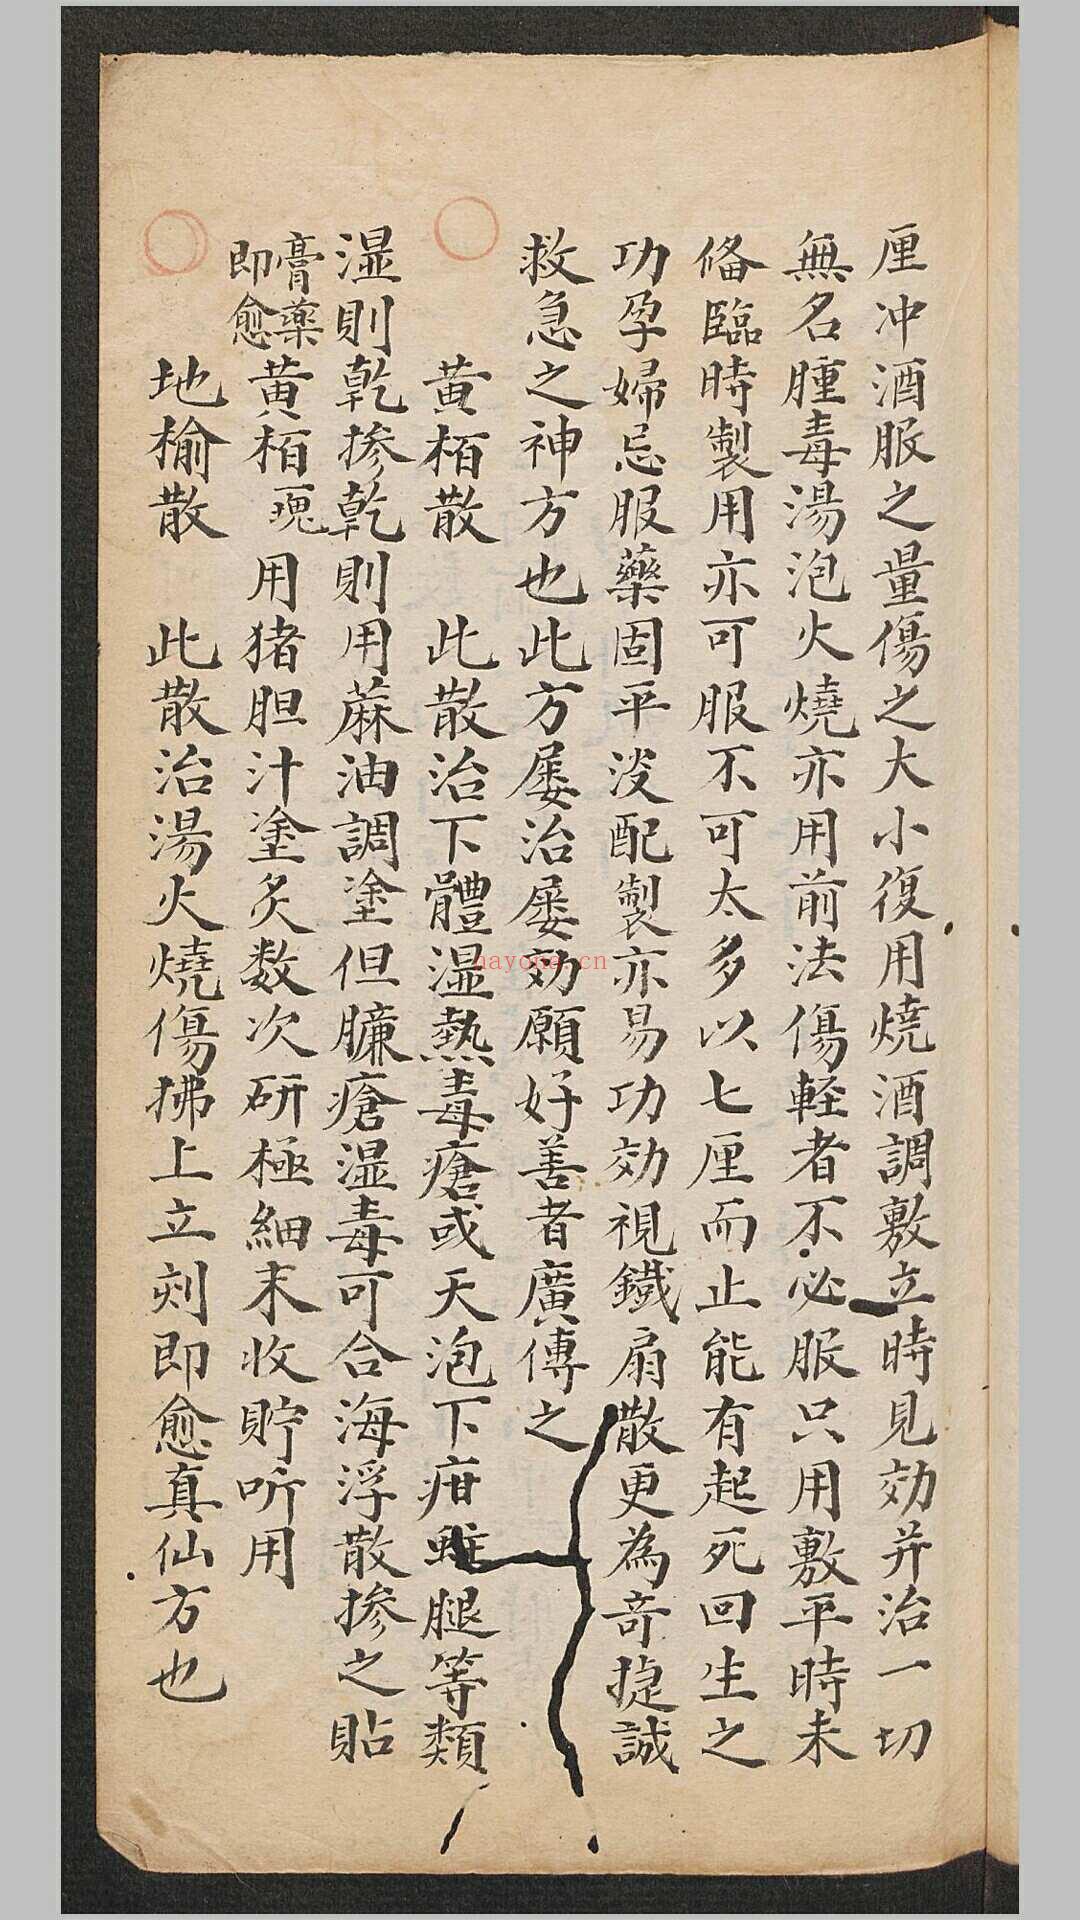 厘冲酒服之量傷之大小復用燒酒調敷立時見効并治一切
無名腫毒湯泡火燒亦用前法傷軽者不必服只用敷平時未
俻臨時製用亦可服不可太多以七厘而止能有起死回生之
功孕婦忌服藥固平淡配製亦易功効視鐵扇散更為奇捷誠
救急之神方也此方屡治屡効願好善者廣傳之
黄栢散　此散治下體湿熱毒瘡或天泡下疳蛀腿等類
湿則乾掺乾則用蔴油調塗但臁瘡湿毒可合海浮散掺之貼
膏藥
即愈
黄栢一塊用猪胆汁塗炙数次研極細末收貯听用
地榆散　此散治湯火燒傷拂上立刻即愈真仙方也
nayona.cn